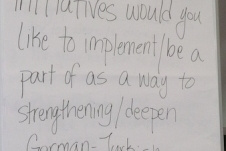 initiatives would you
like to implement/be a
part of as a way to
strengthening/deepen
German-Turkish